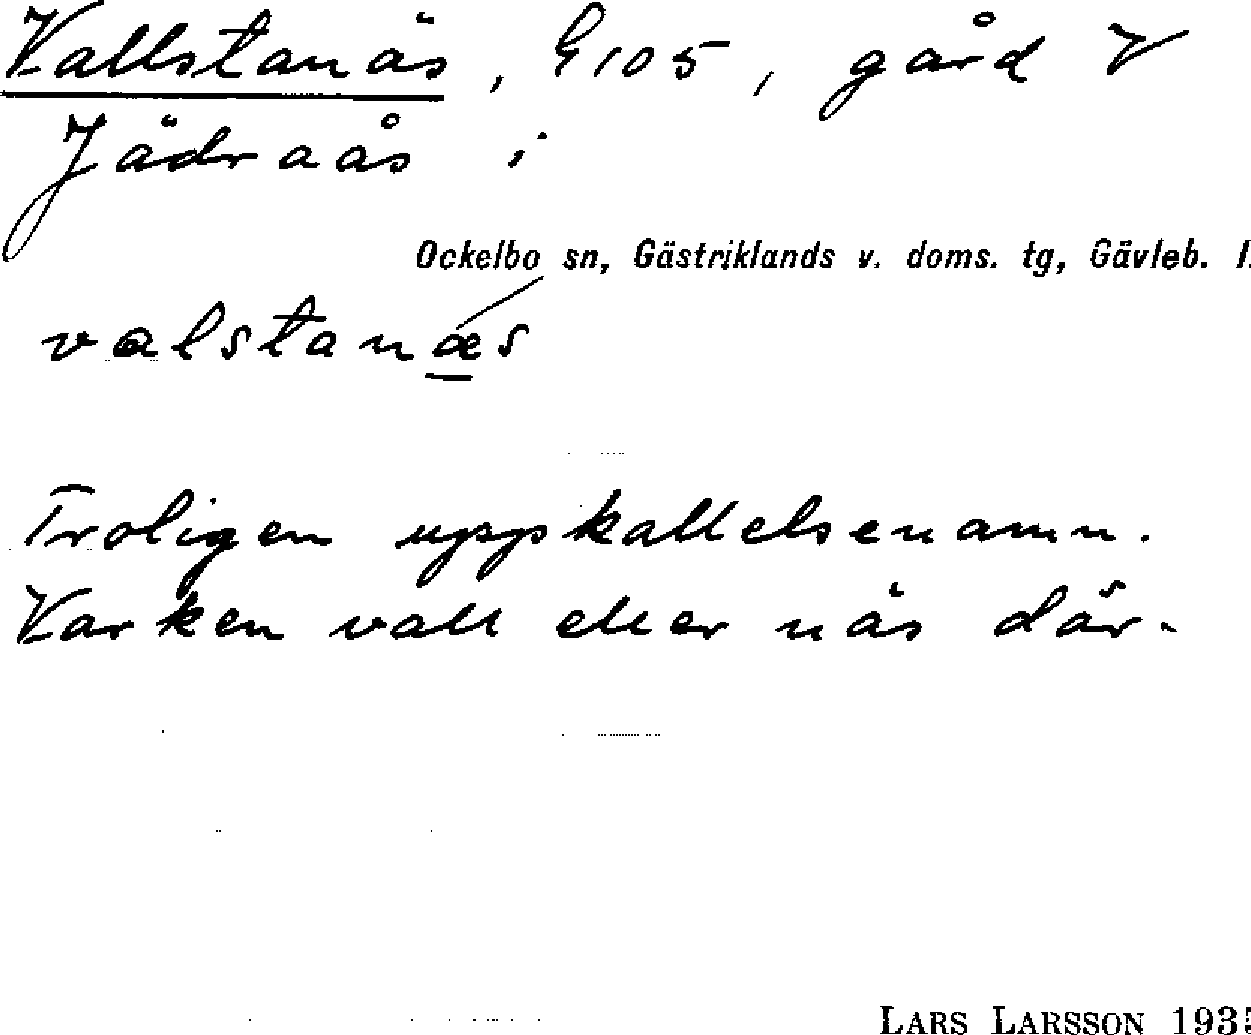 Vallstanäs, G105, gård V
Jädraås i
Ockelbo sn, Gästriklands v. doms. tg, Gävleb. l.
valstanæs
Troligen uppkallelsenamn.
Varken vall eller näs där.
LARS LARSSON 1935